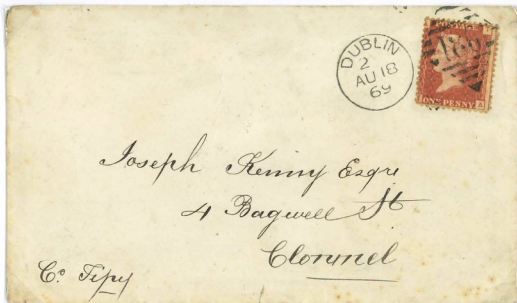 DUBLIN
2
AU 18
69
186
ONE PENNY A
Joseph Kenny Esqre
4 Bagwell St
Clonmel
Co. Tipy